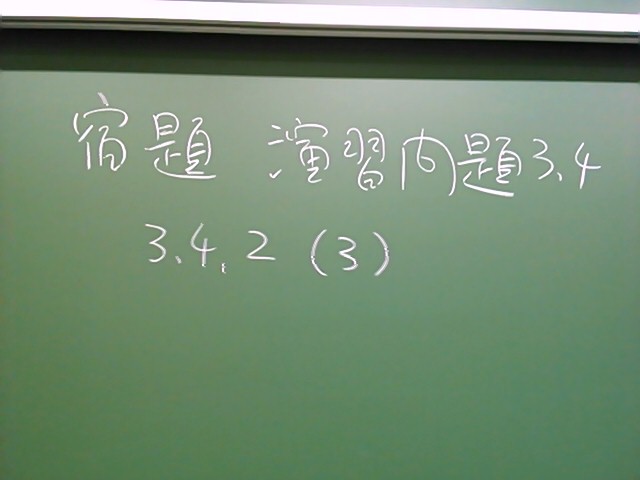 宿題 演習問題3.4
3.4.2 (3)